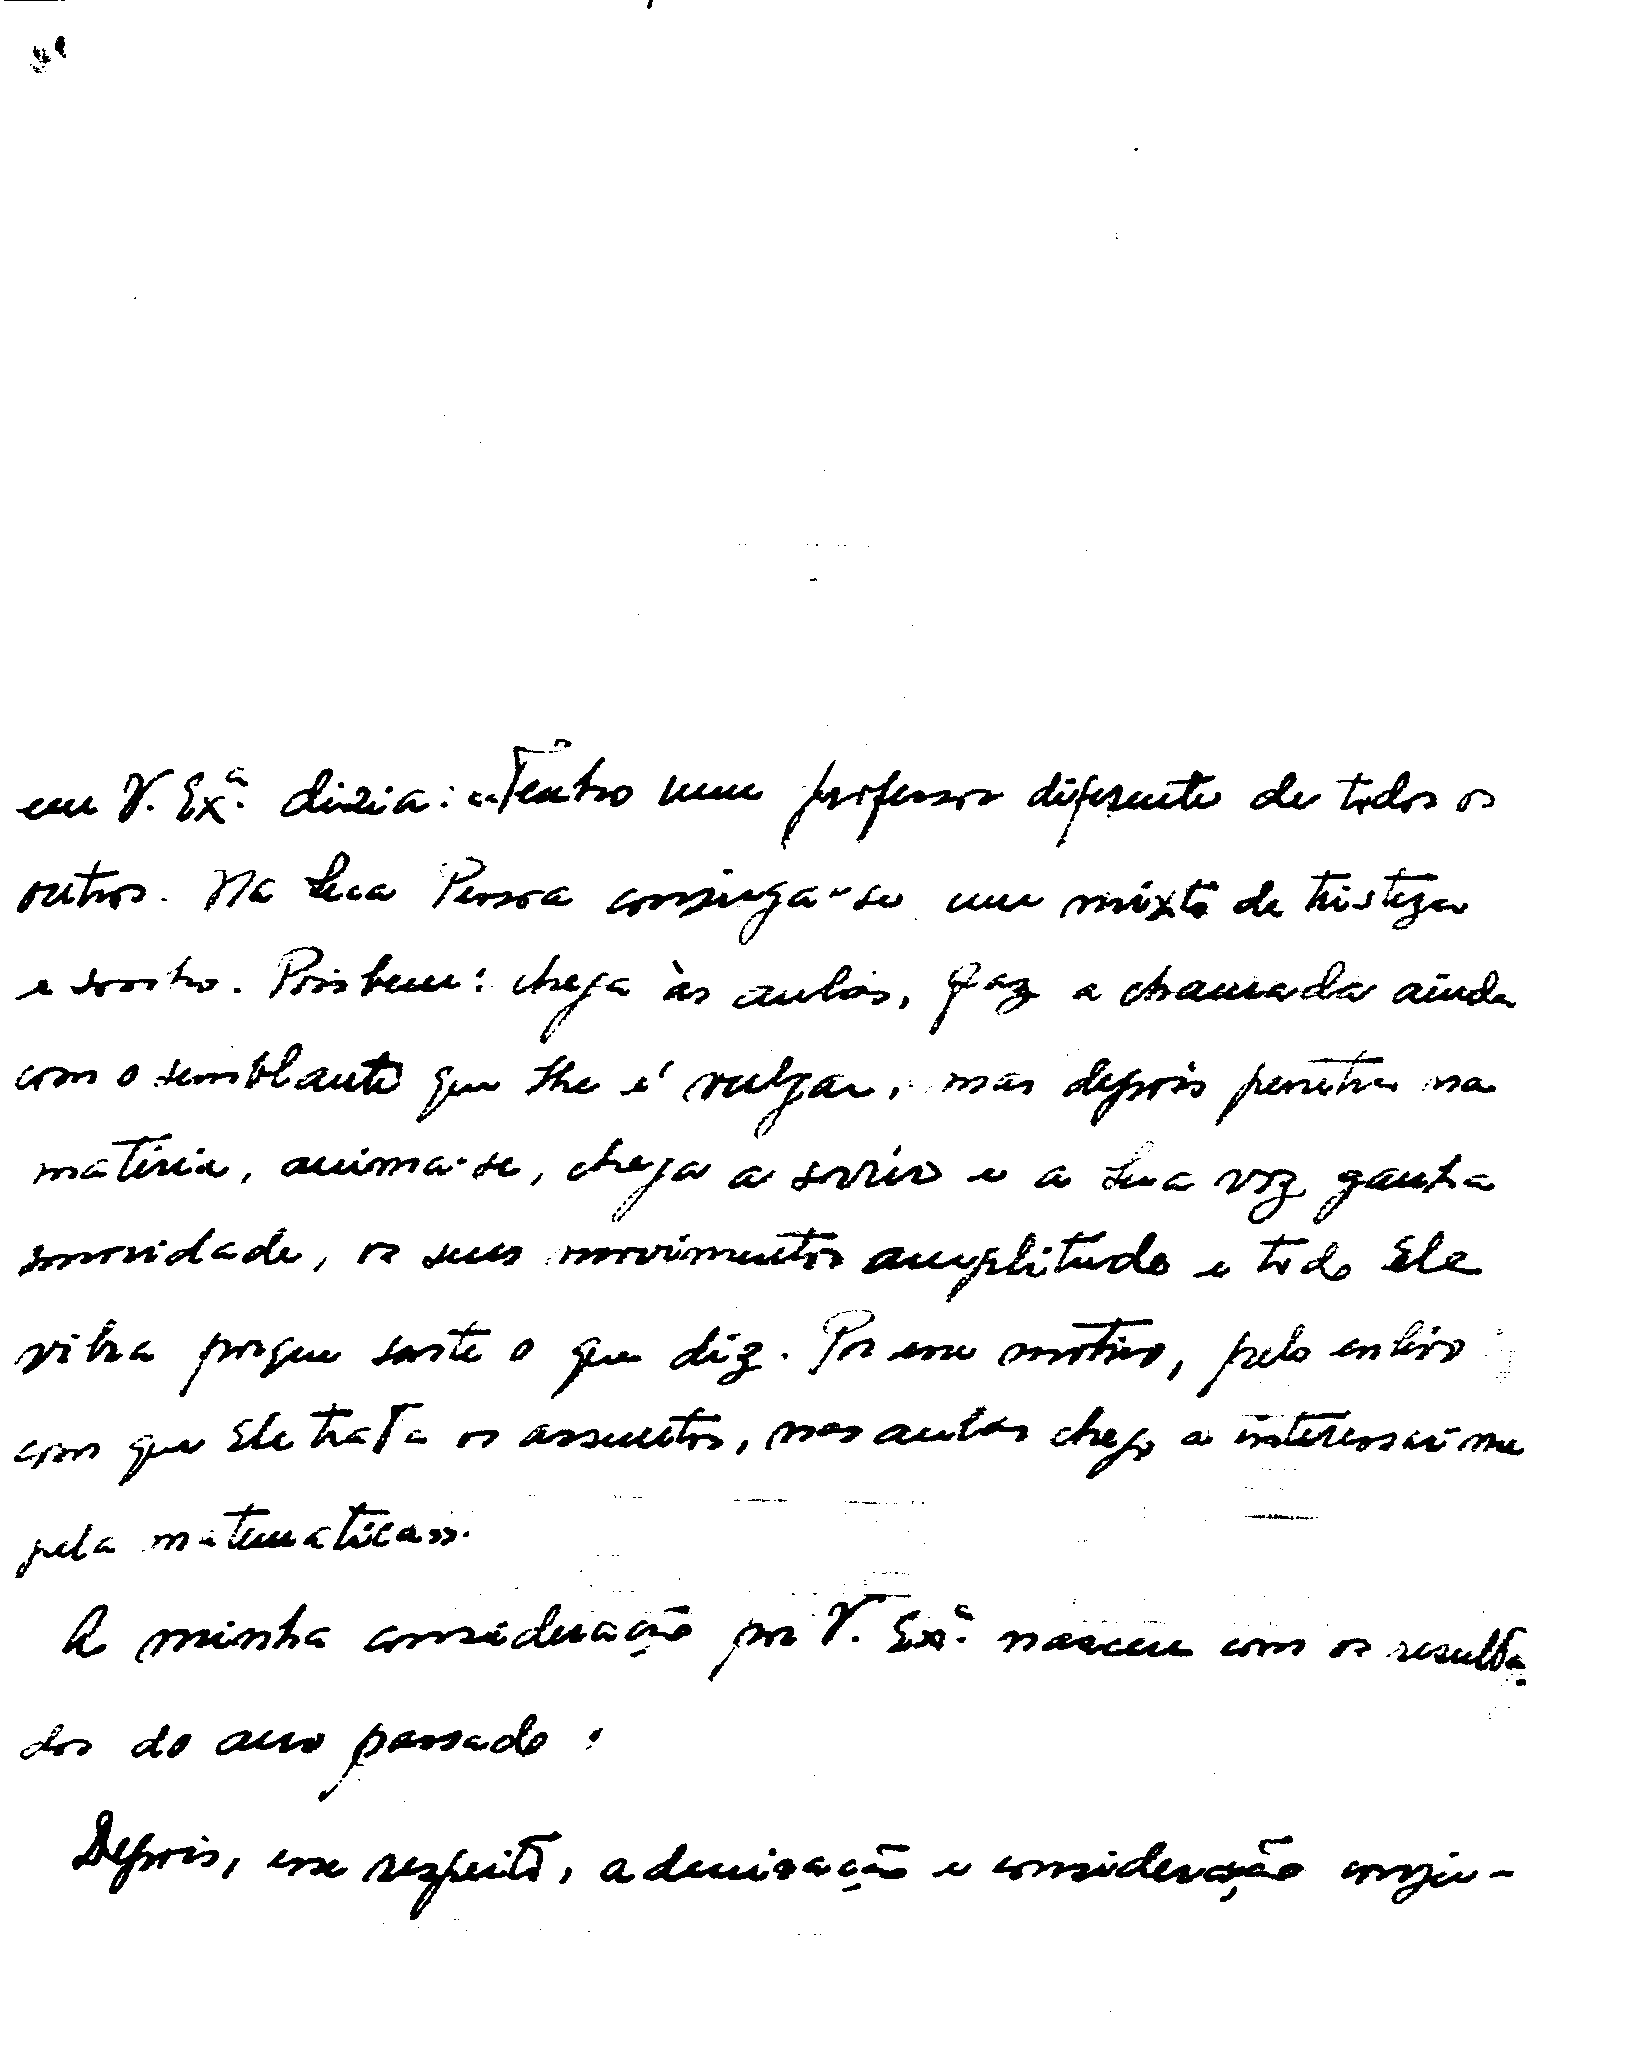 em V. Ex.ª dizia: «Tenho um professor diferente de todos os
outros. Na Sua Pessoa conjuga-se um mixto de tristeza
e sonho. Pois bem: chega às aulas, faz a chamada ainda
com o semblante que lhe é vulgar, mas depois penetra na
matéria, anima-se, chega a sorrir e a Sua voz ganha
sonoridade, os seus movimentos amplitude e todo Ele
vibra porque sente o que diz. Por esse motivo, pelo enlevo
com que Ele trata os assuntos, nas aulas chego a interessar-me
pela matematica».
A minha consideração por V. Ex.ª nasceu com os resulta-
dos do ano passado.
Depois, esse respeito, admiração e consideração conju-